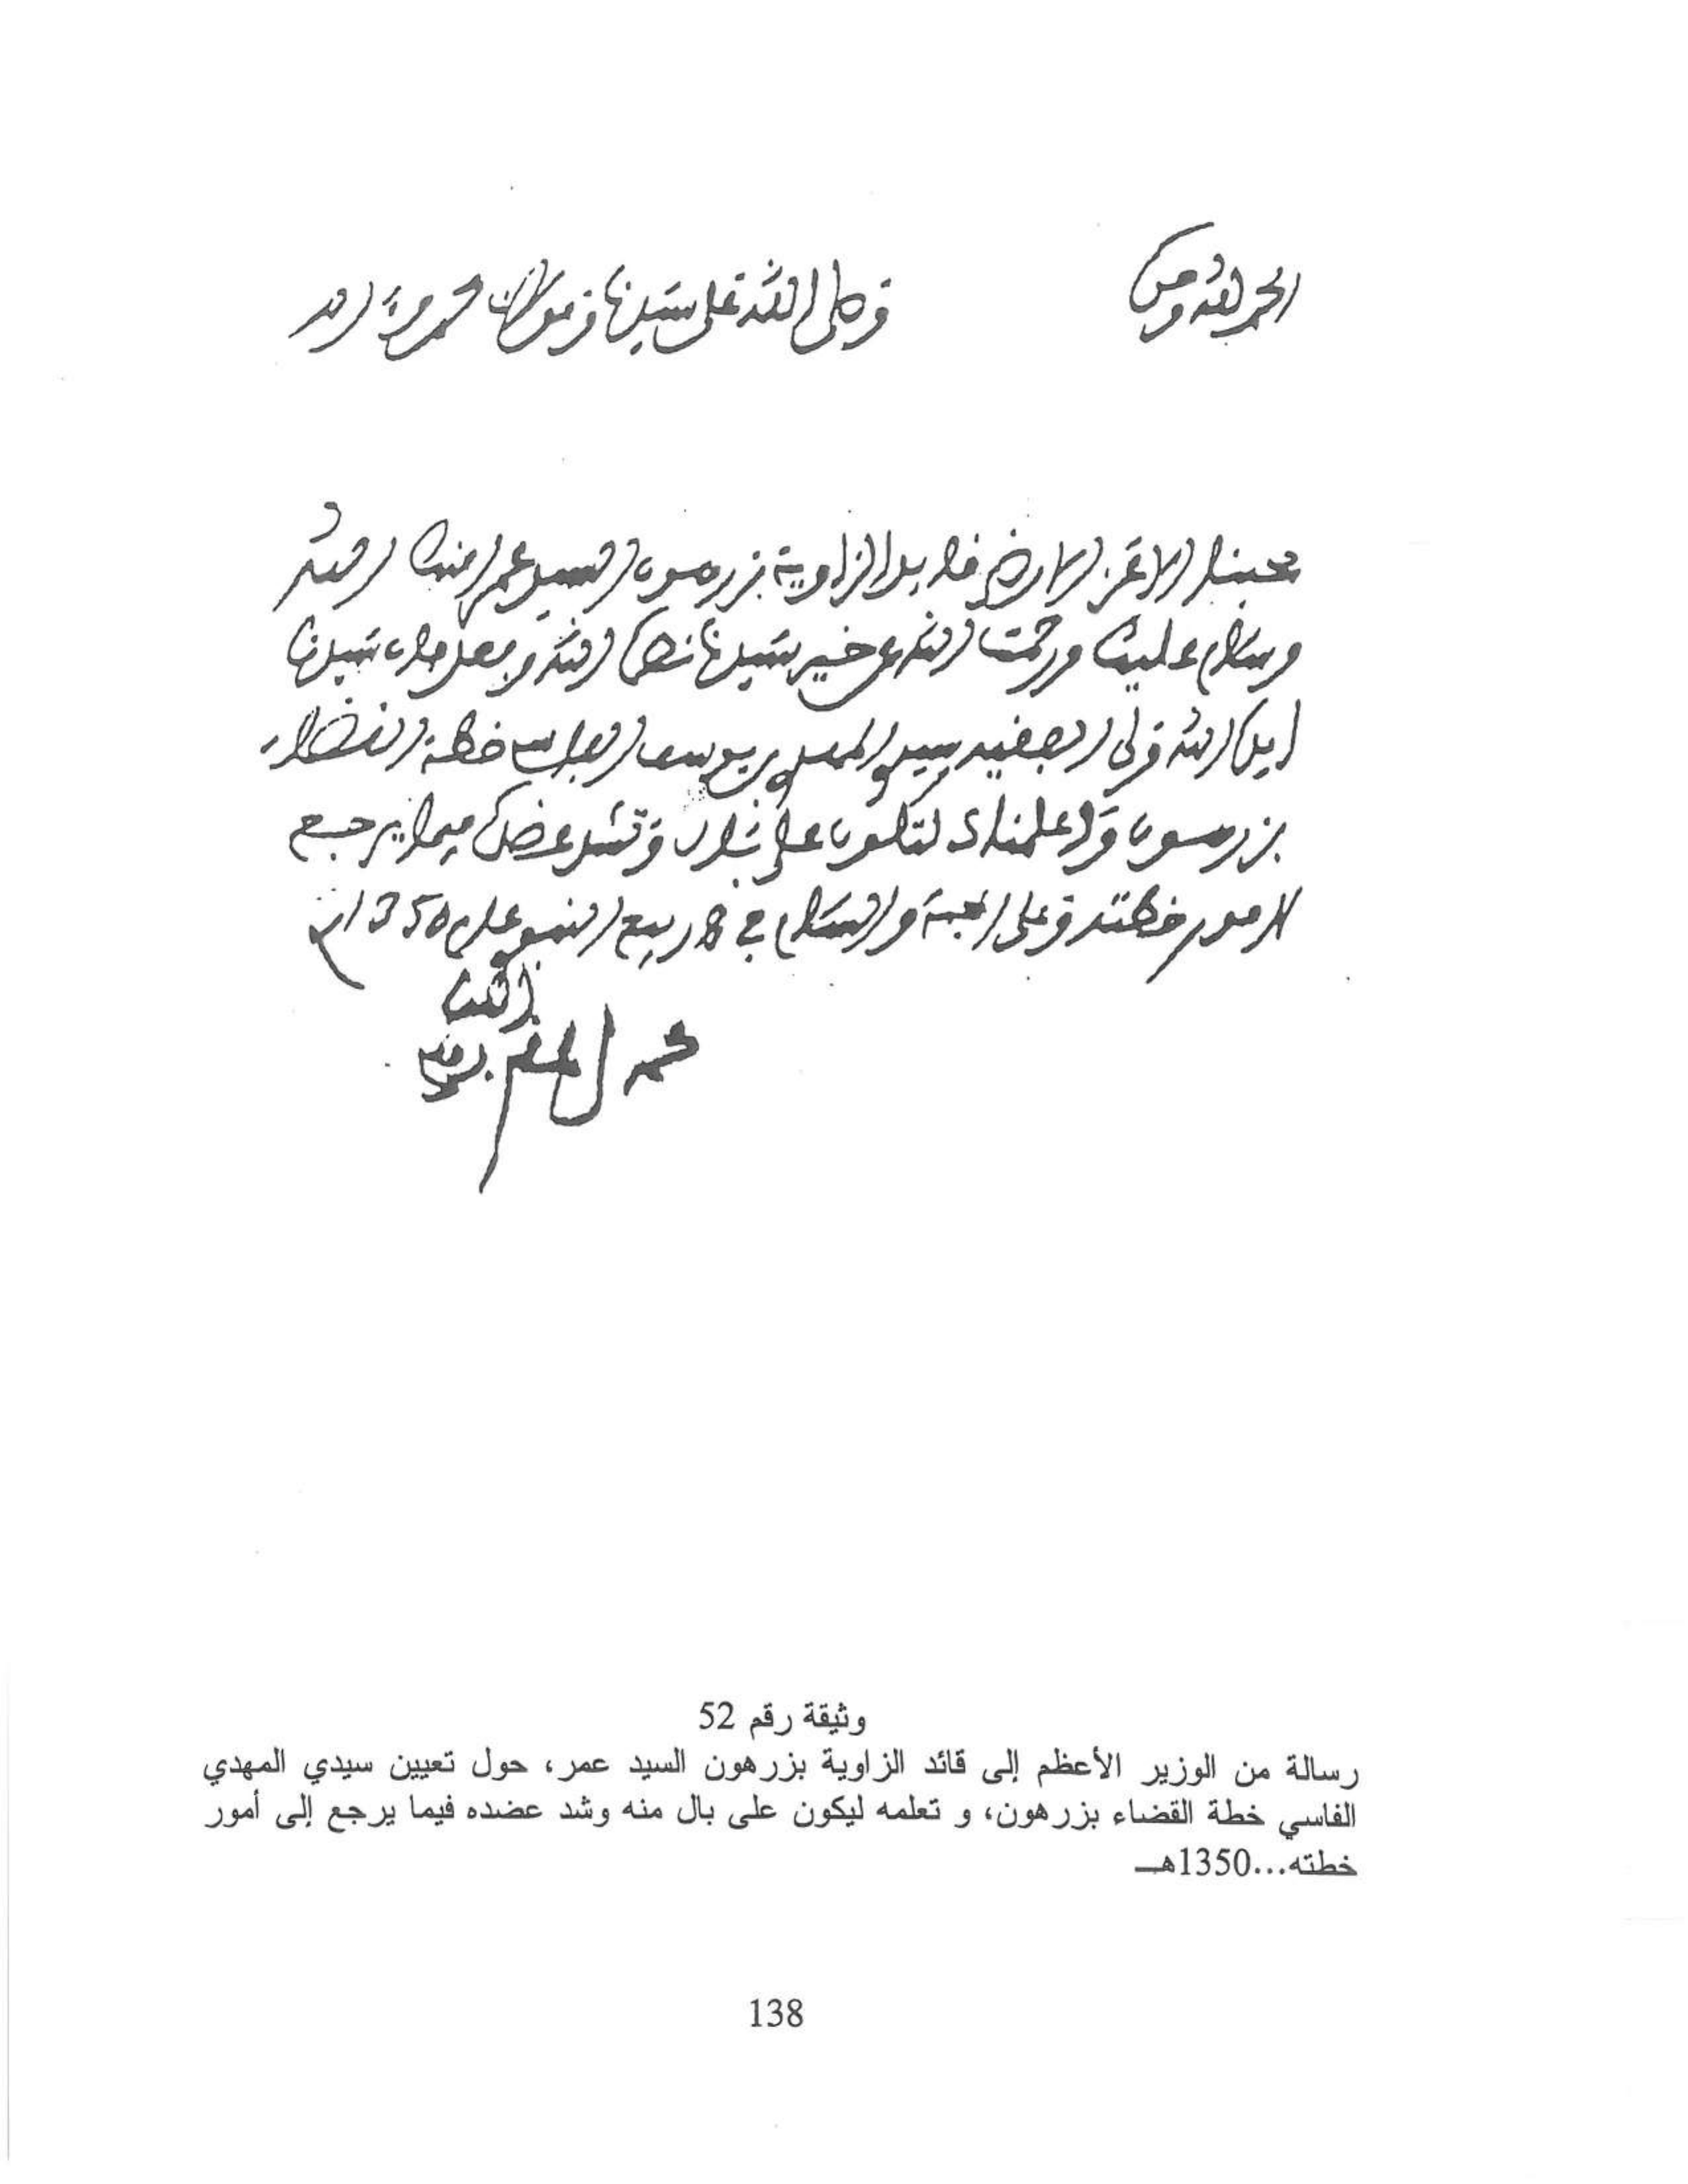 الحمد لله وحده
وصلى الله على سيدنا ومولانا محمد وآله
محبنا الاعز الارضى قايد الزاوية بزرهون السيد عمر امنك الله
وسلام عليك ورحمت الله عن خير سيدنا نصره الله وبعد فان سيدنا
ايده الله ولى الفقيه سيدي المهدي بن يوسف الفاسي خطة القضاء
بزرهون واعلمناك لتكون على بال وتشد عضده فيما يرجع
لامور خطته وعلى المحبة والسلام في 8 ربيع النبوي عام 1350
محمد المقري
وثيقة رقم 52
رسالة من الوزير الأعظم إلى قائد الزاوية بزرهون السيد عمر، حول تعيين سيدي المهدي
الفاسي خطة القضاء بزرهون، و تعلمه ليكون على بال منه وشد عضده فيما يرجع إلى أمور
خطته...1350هـ
138